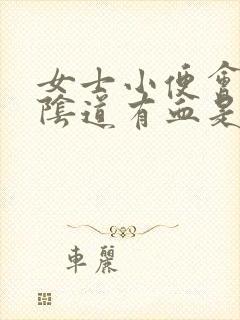 女士小便會
陰道有血是
車麗